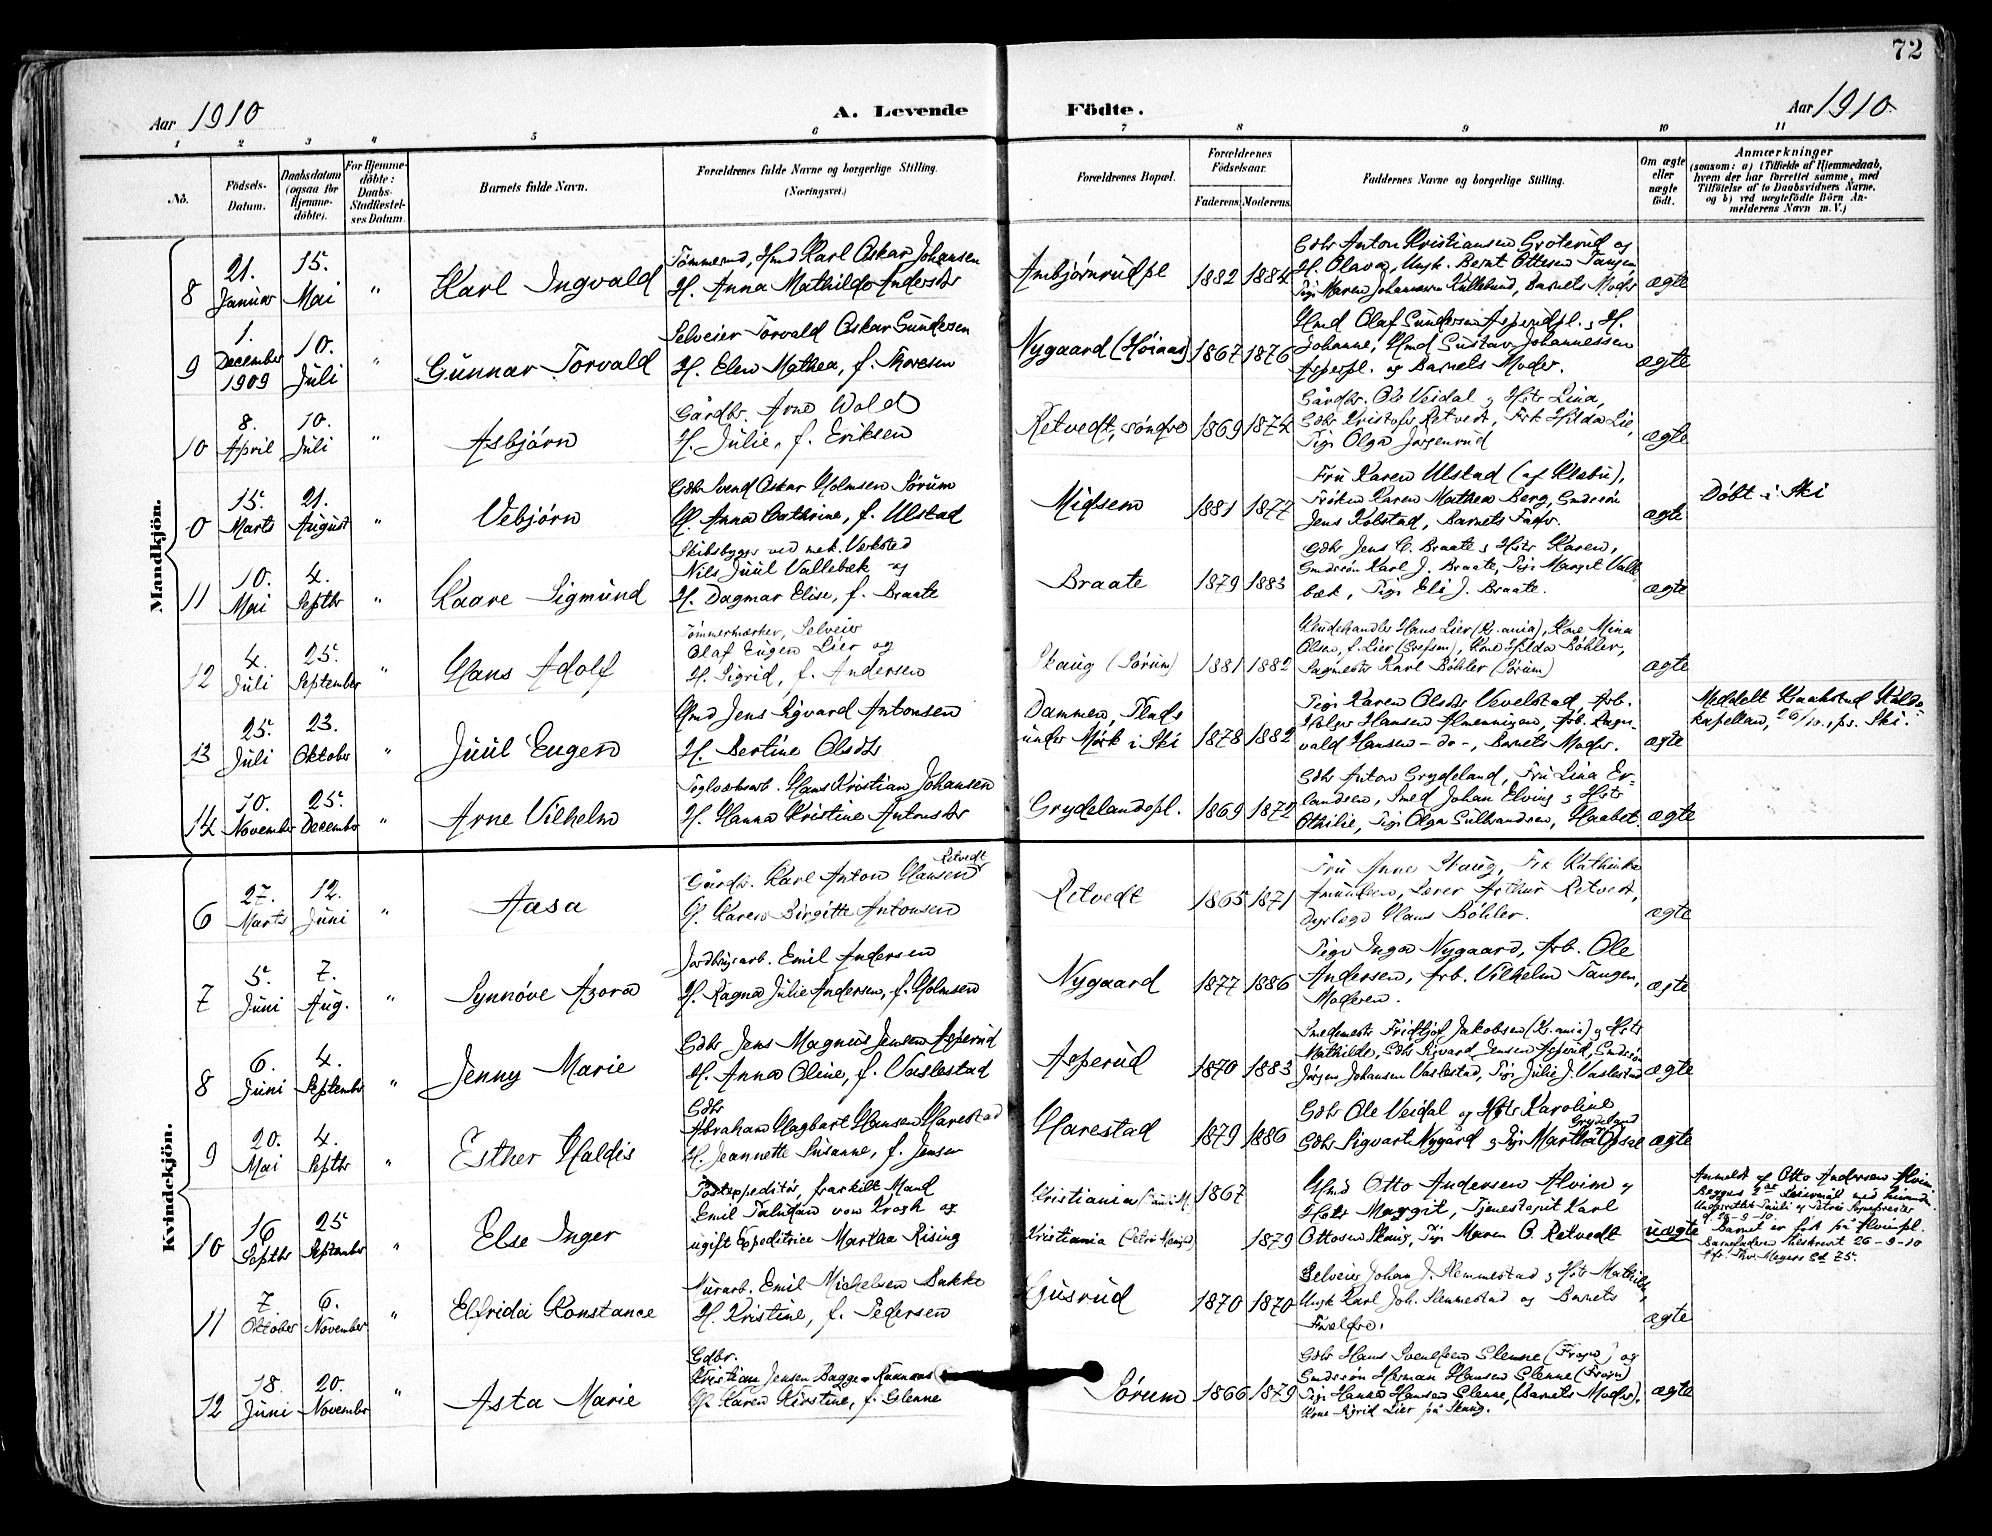 72
Aar 1910
A. Levende
Födte.
Aar 1910.
1 2 3 " 5 6 7 8 9 10 11
No.
Födsels-Datum.
Daabsdatum (ogsaa for Hjemme-döbte).
For Hjemme-döbte: Daabs-Stadfæstel-ses Datum.
Barnets fulde Navn.
Forældrenes fulde Navne og borgerlige Stilling. (Næringsvei.)
Forældrenes Bopæl.
Forældrenes Födselsaar.
Faderens. Moderens.
Faddernes Navne og borgerlige Stilling.
Om ægte eller uægte födt.
Anmærkninger
(saasom: a) i Tilfælde af Hjemmedaab, hvem der har forrettet samme, med Tilföielse af to Daabsvidners Navne, og b) ved uægtefödte Börn An-melderens Navn m. V.)
Mandkjön.
8
21. Januar
15. Mai
"
Karl Ingvald
Tømmermd, Hmd Karl Oskar Johansen
H. Anna Mathilde Andersdtr
Ambjørnrudpl
1882 1884
Gdbr Anton Kristiansen Groterud og
H. Olava, Ungk. Bernt Ottesen Tangen,
Pige Maren Johannesen Kullebund, Barnets Moder
ægte
9
1. December 1909
10. Juli
"
Gunnar Torvald
Selveier Torvald Oskar Gundersen
H. Elen Mathea, f. Thoresen
Nygaard (Høiaas)
1867 1876
Hmd Olaf Gundersen Asperudpl. & H.
Johanne, Hmd Gustav Johannessen
Asperpl. og Barnets Moder.
ægte
10
8. April
10. Juli
"
Asbjørn
Gårdbr. Arne Wold
H. Julie, f. Eriksen
Retvedt, søndre
1869 1874
Gårdbr. Ole Veidal & Hstr Lina,
Gdbr Kristofer Retvedt, Frk Hilda Lie,
Pige Olga Jørgenrud
ægte
0
15. Marts
21. August
"
Vebjørn
Gdbr Svend Oskar Holmsen Sørum
H. Anna Cathrine, f. Ulstad
Midsem
1881 1877
Fru Karen Ulstad (af Klæbu),
Frøken Karen Mathea Berg, Gmdrsøn
Jens Kolstad, Barnets Fader.
ægte
Døbt i Ski
11
10. Mai
4. Septbr
"
Kaare Sigmund
Skibsbygger ved mek. Værksted
Nils Juul Vallebæk og
H. Dagmar Elise, f. Braate
Braate
1879 1883
Gdbr Jens C. Braate & Hstr Karen,
Gmdrsøn Karl J. Braate, Pige Margit Valle-
bæk, Pige Eli J. Braate.
ægte
12
4. Juli
25. September
"
Hans Adolf
Tømmermærker, Selveier
Olaf Eugen Lier og
H. Sigrid, f. Andersen
Skaug (Sørum)
1881 1882
Hans Lier (Kr.ania), Kone Mina
Olsen, f. Lier (Grefsen), Kone Hilda Bøhler,
Sagmester Karl Bøhler (Sørum)
ægte
13
25. Juli
23. Oktober
"
Juul Eugen
Hmd Jens Sigvard Antonsen
H. Bertine Olsdtr
Dammen, Plads
under Mørk i Ski
1878 1882
Pige Karen Olsdtr Vevelstad, Arb.
Holger Hansen Almenningen, Arb. Ragn-
vald Hansen - do -, Barnets Moder.
ægte
Meddelt Kraakstad Resid.
kapellan, 26/10., pr. Ski.
14
10. November
25. December
"
Arne Vilhelm
Teglværksarb. Hans Kristian Johansen
H. Hanna Kristine Antonsdtr
Grydelandspl.
1869 1872
Gdbr Anton Grydeland, Fru Lina Er-
landsen, Smed Johan Elving & Hstr
Othilie, Pige Olga Gulbrandsen, Haabet.
ægte
Kvindekjön.
6
27. Marts
12. Juni
"
Aasa
Gårdbr. Karl Anton Hansen Retvedt
H. Karen Birgitte Antonsen
Retvedt
1865 1871
Fru Anne Skaug, Frk Kathinka
Amundsen, Lærer Arthur Retvedt,
Dyrlæge Hans Bøhler.
ægte
7
5. Juni
7. Aug.
"
Synnøve Azora
Jordbrugsarb. Emil Andersen
H. Ragna Julie Andersen, f. Holmsen
Nygaard
1877 1886
Pige Inga Nygaard, Arb. Ole
Andersen, Arb. Vilhelm Tangen,
Moderen.
ægte
8
6. Juni
4. Septembr
"
Jenny Marie
Gdbr Jens Magnus Jensen Asperud
H. Anna Oline, f. Vaslestad
Asperud
1870 1883
Smedmester Fridtjof Jakobsen (Kr.ania) & Hstr
Mathilde, Gdbr Sigvard Jensen Asperud, Gmdrsøn
Jørgen Johansen Vaslestad, Pige Julie J. Vaslestad
ægte
9
20. Mai
4. Septbr
"
Esther Haldis
Gdbr
Abraham Hagbart Hansen Harestad
H. Jeannette Susanne, f. Jensen
Harestad
1879 1886
Gdbr Ole Veidal og Hstr Karoline
Gdbr Sigvart Nygård & Pige Martha
ægte
10
16 Septbr
25 September
"
Else Inger
Postexpeditør, fraskilt Mand
Emil von Krogh og
ugift Expeditrice Martha Rising
Kristiania
Kristiania (Petri Menigh)
1867
1879
Hmd Otto Andersen Alvim &
Hstr Maggit, Tjenestegut Karl
Ottosen Skaug, Pige Maren O. Retvedt
uægte
Anmeldt af Otto Andersen Alvim.
Begges 2det Leiermål med hinanden.
26-9-10.
Barnet er født på Alvimpl.
Barnefaderen tilskrevet 26-9-10
Adr. Thv. Meyers Gd 75.
11
7. Oktober
6. November
"
Elfrida Konstance
Murarb. Emil Michelsen Bakke
H. Kristine, f. Pedersen
Gjusrud
1870 1870
Selveier Johan J. Hemmestad & Hstr Mathilde,
Ungk Karl Joh. Hemmestad og Barnets
Forældre.
ægte
12
18. Juni
20. November
"
Asta Marie
Gdbr.
Kristian Jensen Bagge
H. Karen Kirstine, f. Glenne
Sørum
1866 1879
Gdbr Hans Svendsen Glenne (Frogn) og
Gmdrsøn Herman Hansen Glenne (Frogn)
Pige Hanna Hansen Glenne, (Barnets Moder).
Kone Sigrid Lier på Skaug.
ægte